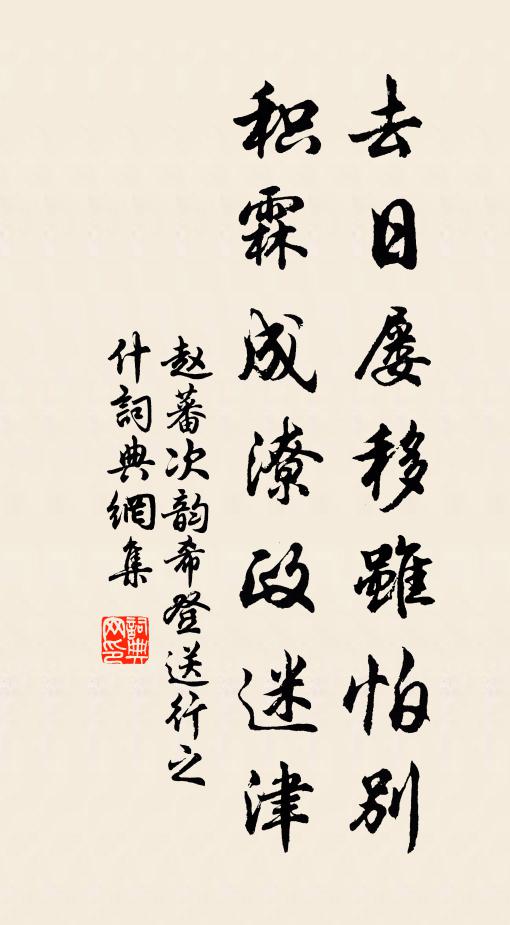 去日屡移雖怕別
积霖成潦政迷津
赵蕃次韵希登送行之
什詞典網集
詞典网印